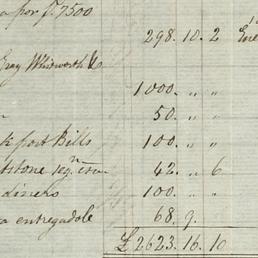 a por f. 7500
298. 10. 2
Gray Whitworth &
1000. „ „
50. „ „
k post Bills 100. „ „
42. „ 6
diners 100. „ „
a entregadole 68. 9.
£ 2623. 16. 10